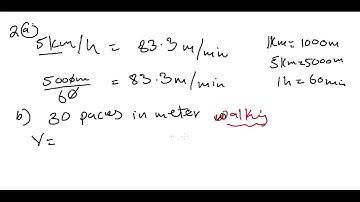 2(a)
5km/h = 83.3m/min
1km=1000m
5km=5000m
5000m/60 = 83.3m/min
1h=60min
b) 30 paces in meter walking
V=